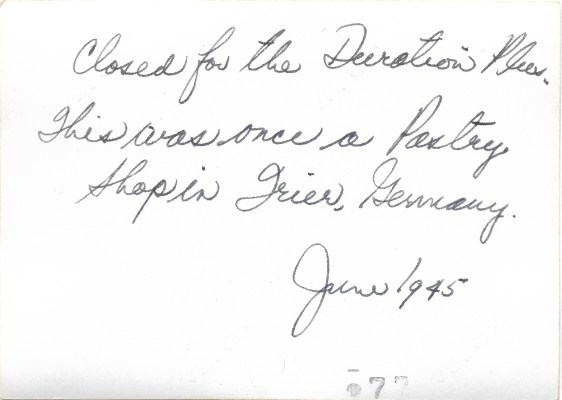 Closed for the Duration Plus.
This was once a Pastry
Shop in Trier, Germany.
June 1945
77